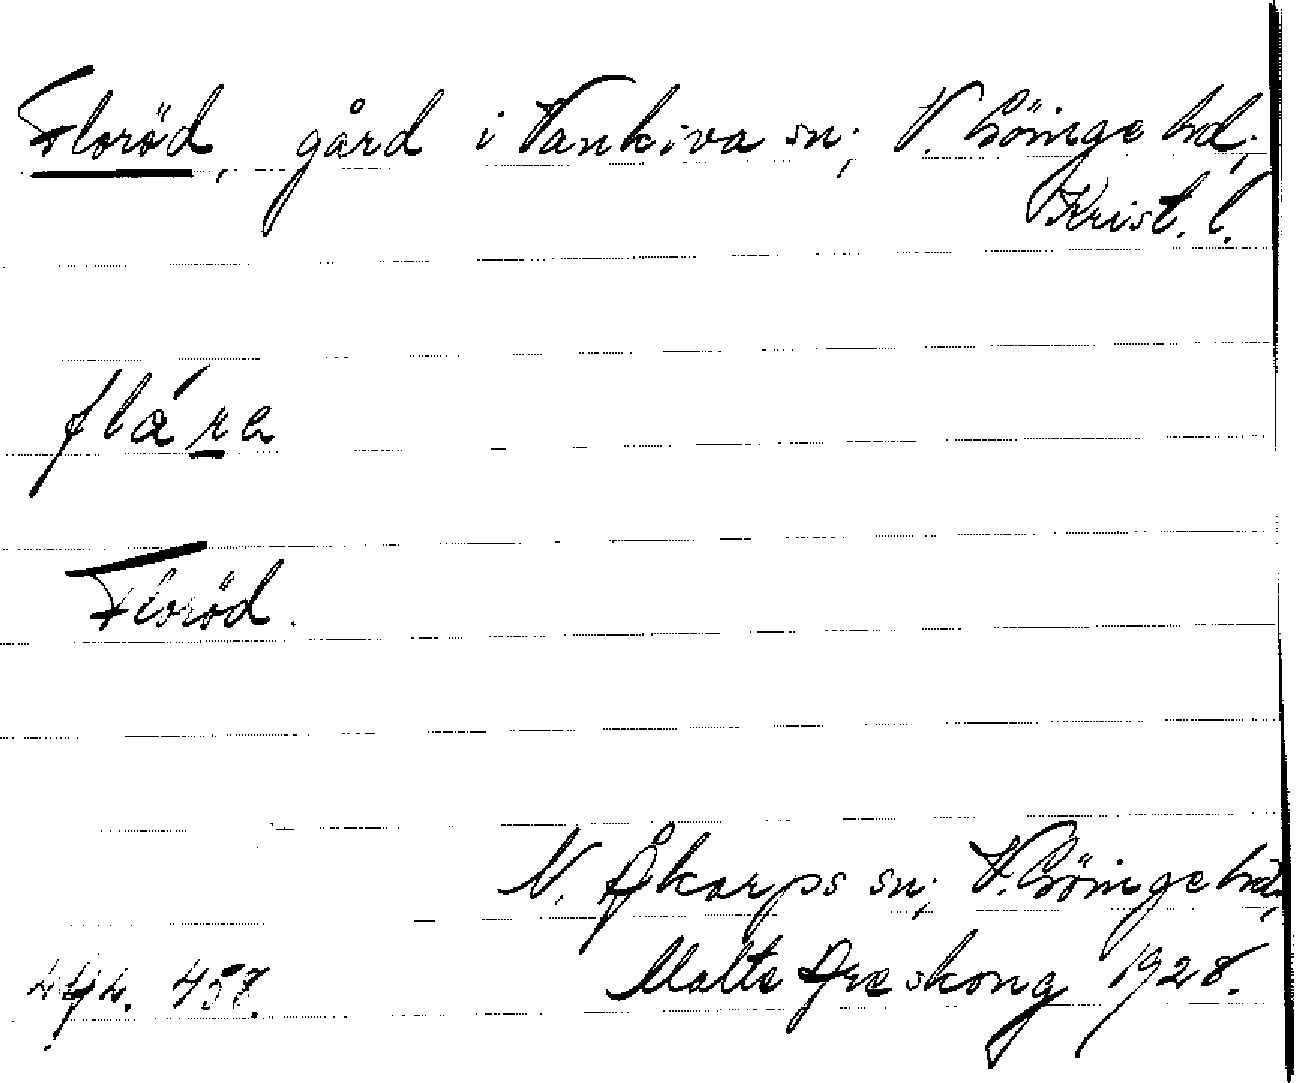 Floröd, gård i Vankiva sn; V. Göinge hd;
Krist. l.
flára
Floröd.
N. Åkarps sn; V. Göinge hd,
Malte Areskong 1928.
458.